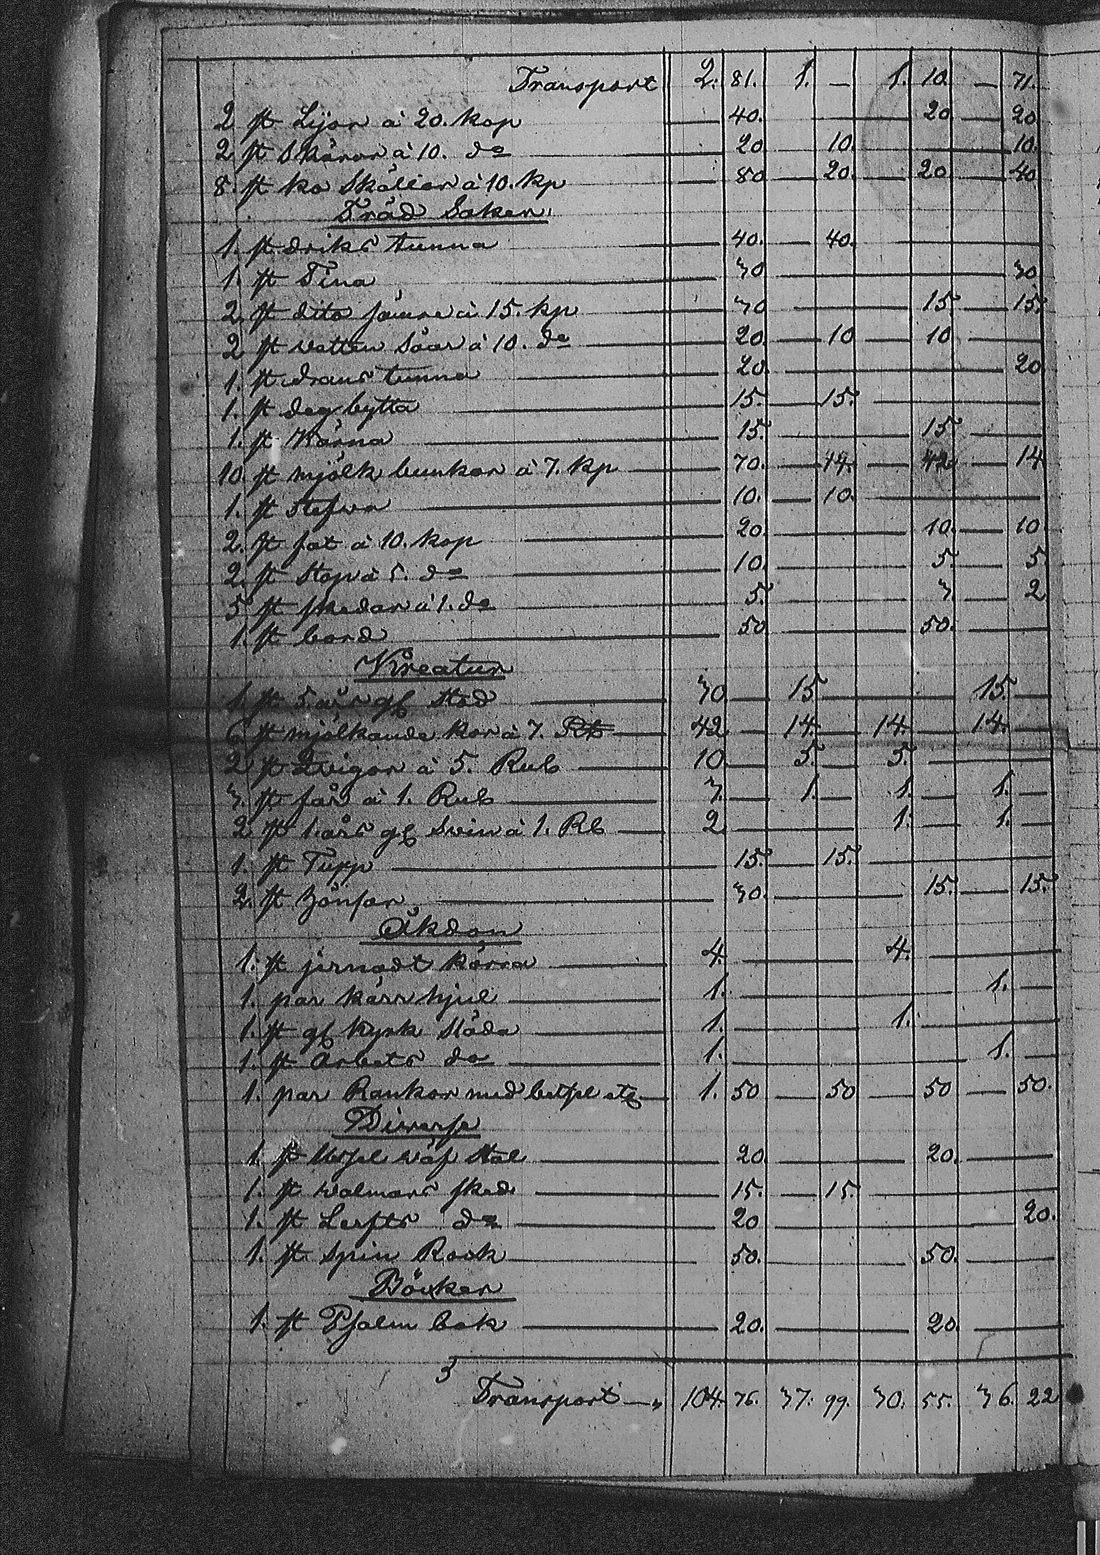 Transport 2. 81. 1. — 1. 10. — 71.
2 st Lijor à 20. kop — 40. 20 — 20
2 st Skäror à 10. do — 20 — 10. — 10.
8. st ko Skällor à 10. kp — 80 — 20. — 20 — 40
Träd Saker.
1. st driks tunna — 40. — 40.
1. st Tina — 30 — 30
2 st dito sämre à 15. kp — 30 — 15 — 15.
2 st vatten Såar à 10. do — 20 — 10 — 10.
1. st drans tunna — 20. — 20
1. st deg bytta — 15. — 15.
1. st Kärna — 15. — 15.
10. st mjölk bunkar à 7. kp — 70. — 14. — 42 — 14
1. st Stäfva — 10. — 10.
2. st fat à 10. kop — 20. — 10. — 10
2. st Stop à 5. do — 10. — 5. — 5
5 st skedar à 1. do — 5. — 3. — 2
1. st bord — 50 — 50.
Kreatur
1. st 5. års gl Stod — 30 — 15 — 15. —
6 st mjölkande kor à 7. Rb — 42 — 14. — 14. — 14. —
2 st Qvigor à 5. Rub — 10 — 5. — 5. —
3. st får à 1. Rub — 3. — 1. — 1. — 1. —
2 st 1. års gl Svin à 1. Rb — 2 — 1. — 1. —
1. st Tupp — 15. — 15.
2. st Hönsor — 30. — 15. — 15.
Åkdon
1. st jernadt kärra — 4. — 4. —
1. par kärr hjul — 1. — 1. —
1. st gl kyrk Släda — 1. — 1. —
1. st Arbets do — 1. — 1. —
1. par Rankor med betsel etc — 1. 50 — 50 — 50 — 50.
Diverse
1. st väf Stol — 20 — 20. —
1. st walmars sked — 15. — 15.
1. st Lerfts do — 20 — 20.
1. st Spin Rock — 50. — 50. —
Böcker
1. st Psalm bok — 20. — 20 —
3
Transport — 104. 76. 37. 99. 30. 55. 36. 22